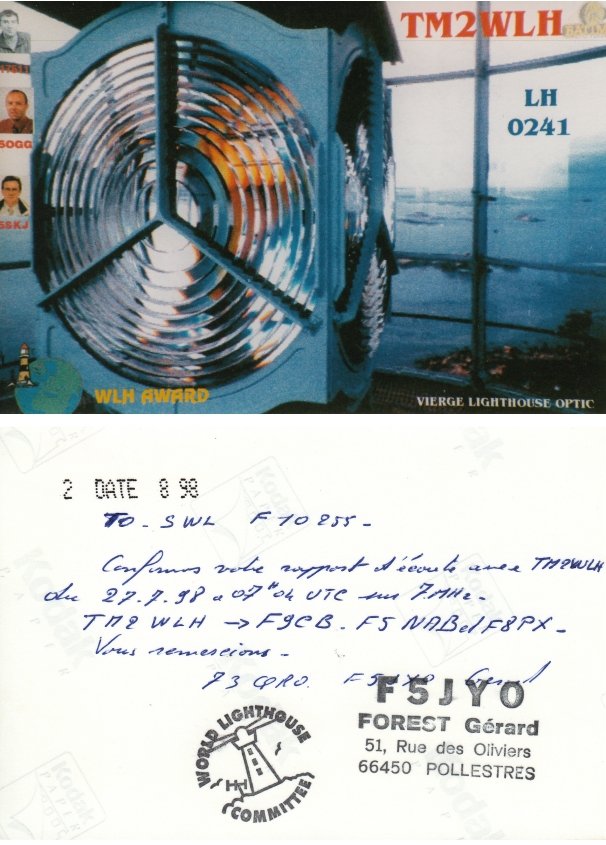 TM2WLH
BATIM
LH
0241
5OGG
5SKJ
WLH AWARD
VIERGE LIGHTHOUSE OPTIC
2 DATE 8 98
TO - SWL F10255 -
Confirmons votre rapport d'écoute avec TM2WLH
du 27.7.98 a 07H04 UTC sur 7MHz -
TM2WLH → F9CB - F5NAB et F8PX -
Vous remercions -
73 QRO. F5JYO Gerard
F5JYO
FOREST Gérard
51, Rue des Oliviers
66450 POLLESTRES
WORLD LIGHTHOUSE
COMMITTEE
Kodak
PAPIER